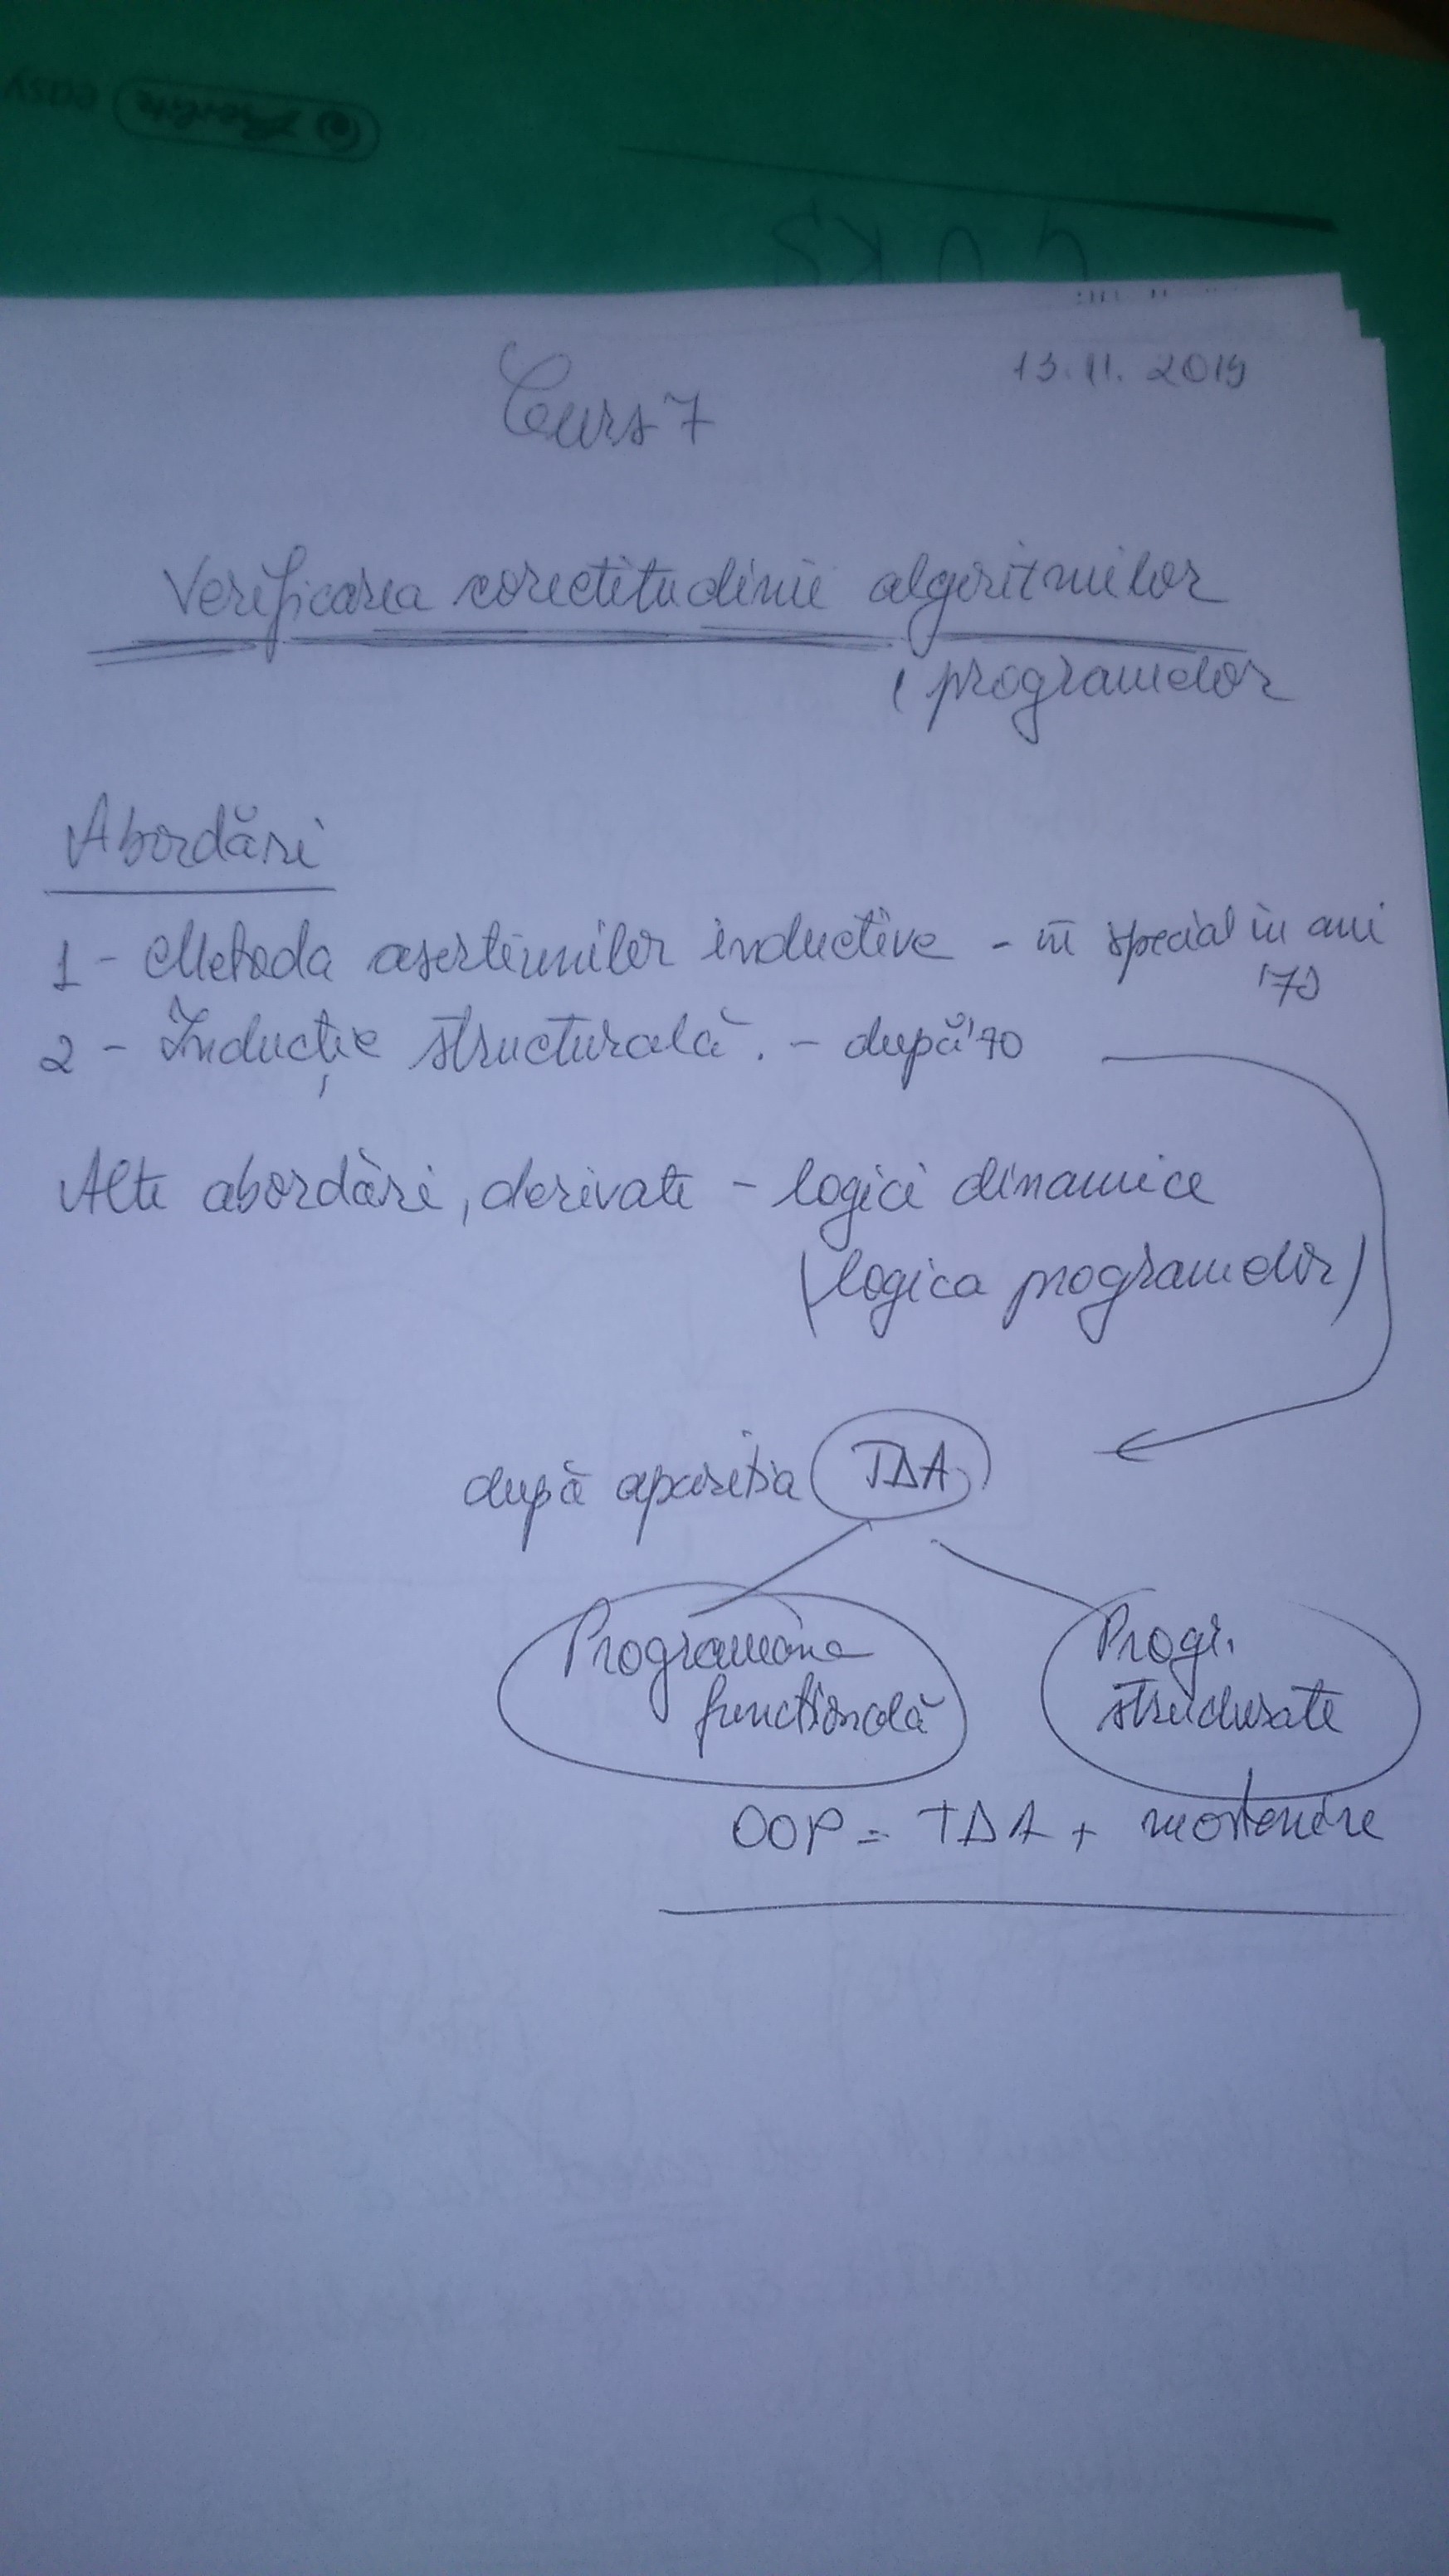 easy
Curs 7
13.11.2019
Verificarea corectitudinii algoritmilor
(programelor
Abordări
1 - Metoda aserțiunilor inductive - în special în anii
'70
2 - Inducție structurală. - după '70
Alte abordări, derivate - logici dinamice
(logica programelor)
după apariția TDA
Programarea
funcțională
Progr.
structurate
OOP = TDA + moștenire